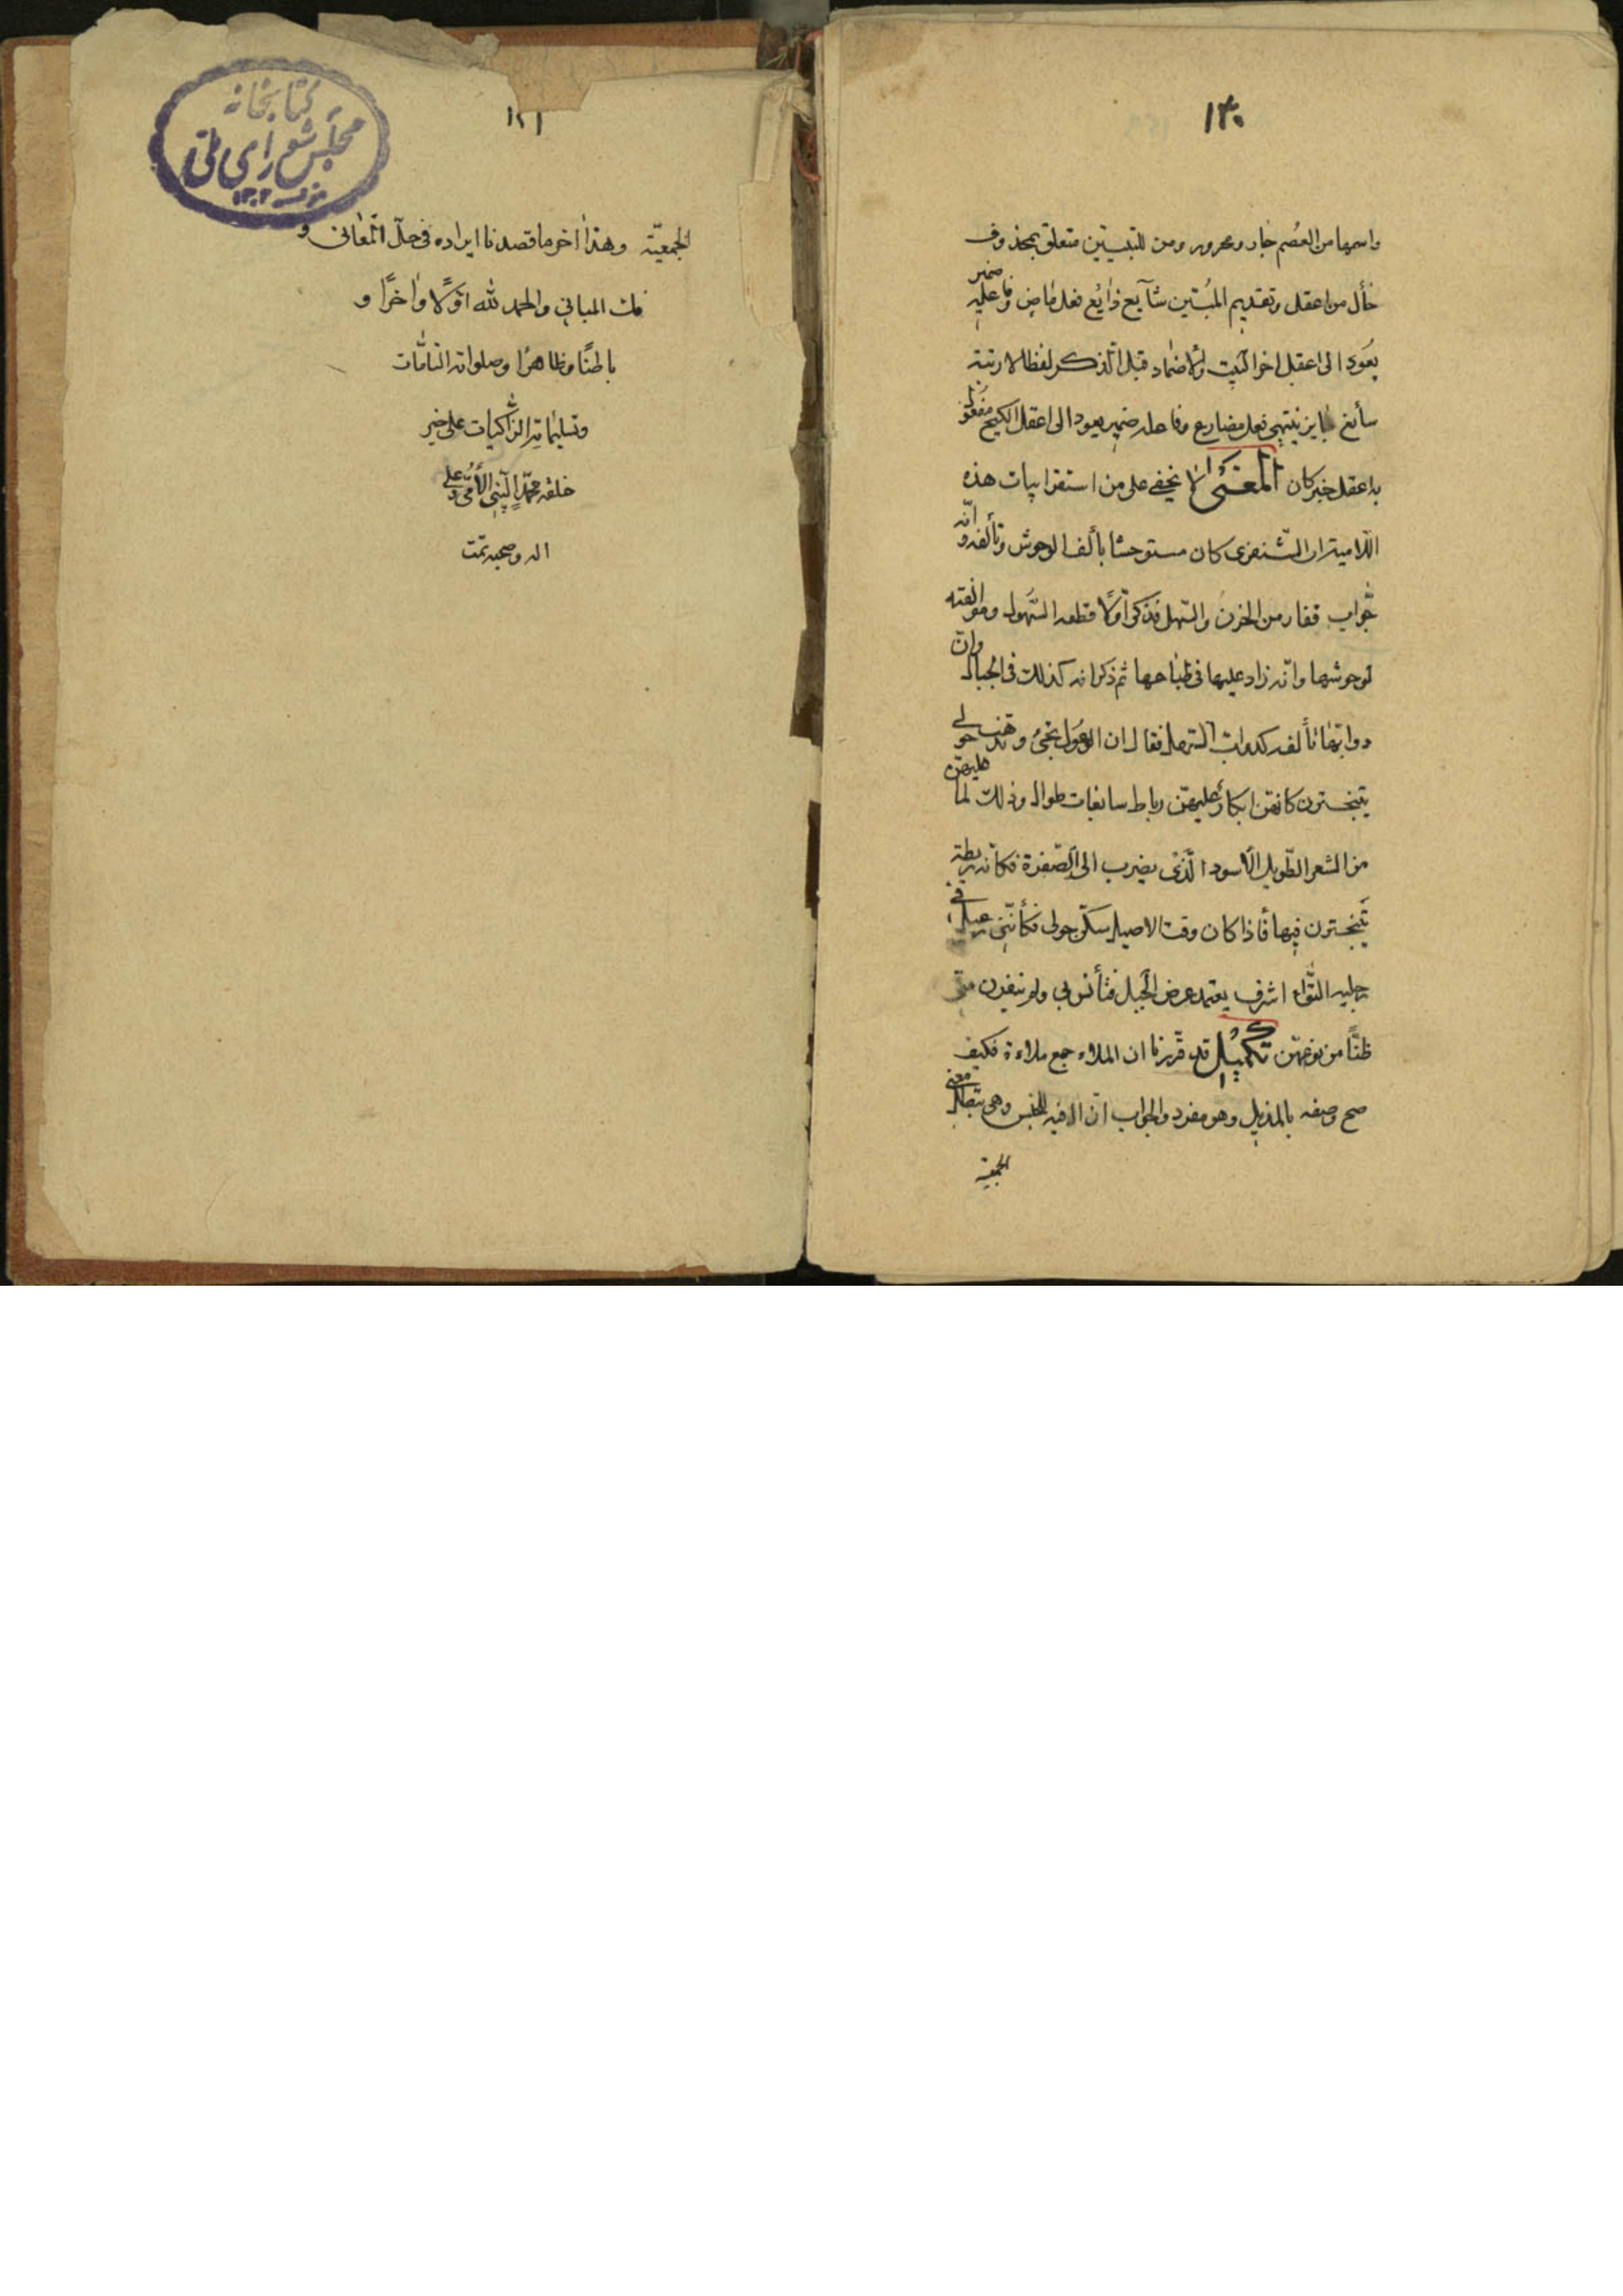 ١٣٠
واسمها من العصم جار ومجرور ومن للتبيين متعلق بمحذوف
حأل من اعقل وتقديم المبُتين شآيع ذايُع فعل ماضٍ وفاعله ضمير
يعَود الى اعقل اخر البَيت والاضمار قبل الذكر لفظا لا رتبة
سأئغ جايز ينتهى فعل مضارع وفاعله ضمير يعود الى اعقل الكيح مفعول
به اعقل خبر كان المعنى لا يخفى على من استقرا ابيات هذه
اللامية ان الشنفرى كان مستوحشا يألف الوحوش وتألفه وانّه
جَّواب قفار من الحزن والسّهل فذكر أوّلًا قطعه السُّهول وموافقته
لوحوشها وانّه زاد عليها فى طباعها ثم ذكر انه كذلك فى الجبال وانّ
دوابّها تألفه كدواب السّهل فقال ان الوعول تجئ وتذهب حولى
يتبخترن كانهّن ابكار عليهّن رياط سابغات طوال وذلك لما عليهّن
من الشعر الطّويل الأسود الّذى يضرب الى الصّفرة فكانّه ريطة
يَتبخترن فيها فأذا كان وقت الاصيل سكنّ حولى فكأننّى فى
جليه النقّاء اشرف يعتمد عرض الجَبل فتأنس بى ولم ينفرن منّى
ظنًّا من نوعهّن تكميل قد قرّرنا ان الملاء جمع ملاءة فكيف
صح وصفه بالمذيل وهو مفرد والجواب انّ ال فيه للجنس وهى تبطل معنى
الجمعيّة
١٣١
كتابخانه
مجلس شوراى ملّى
الجمعيّة وهذا اخر ما قصدنا ايراده فى حلّ المعَانى و
فك المبانى والحمد لله اوّلًا واٰخرًا و
باطنًا وظاهرًا وصلواته التامّات
وتسليماته الزّاكيات على خير
خلقه محمّدٍ النّبى الأمّىّ وعلى
اله وصحبه تمّت